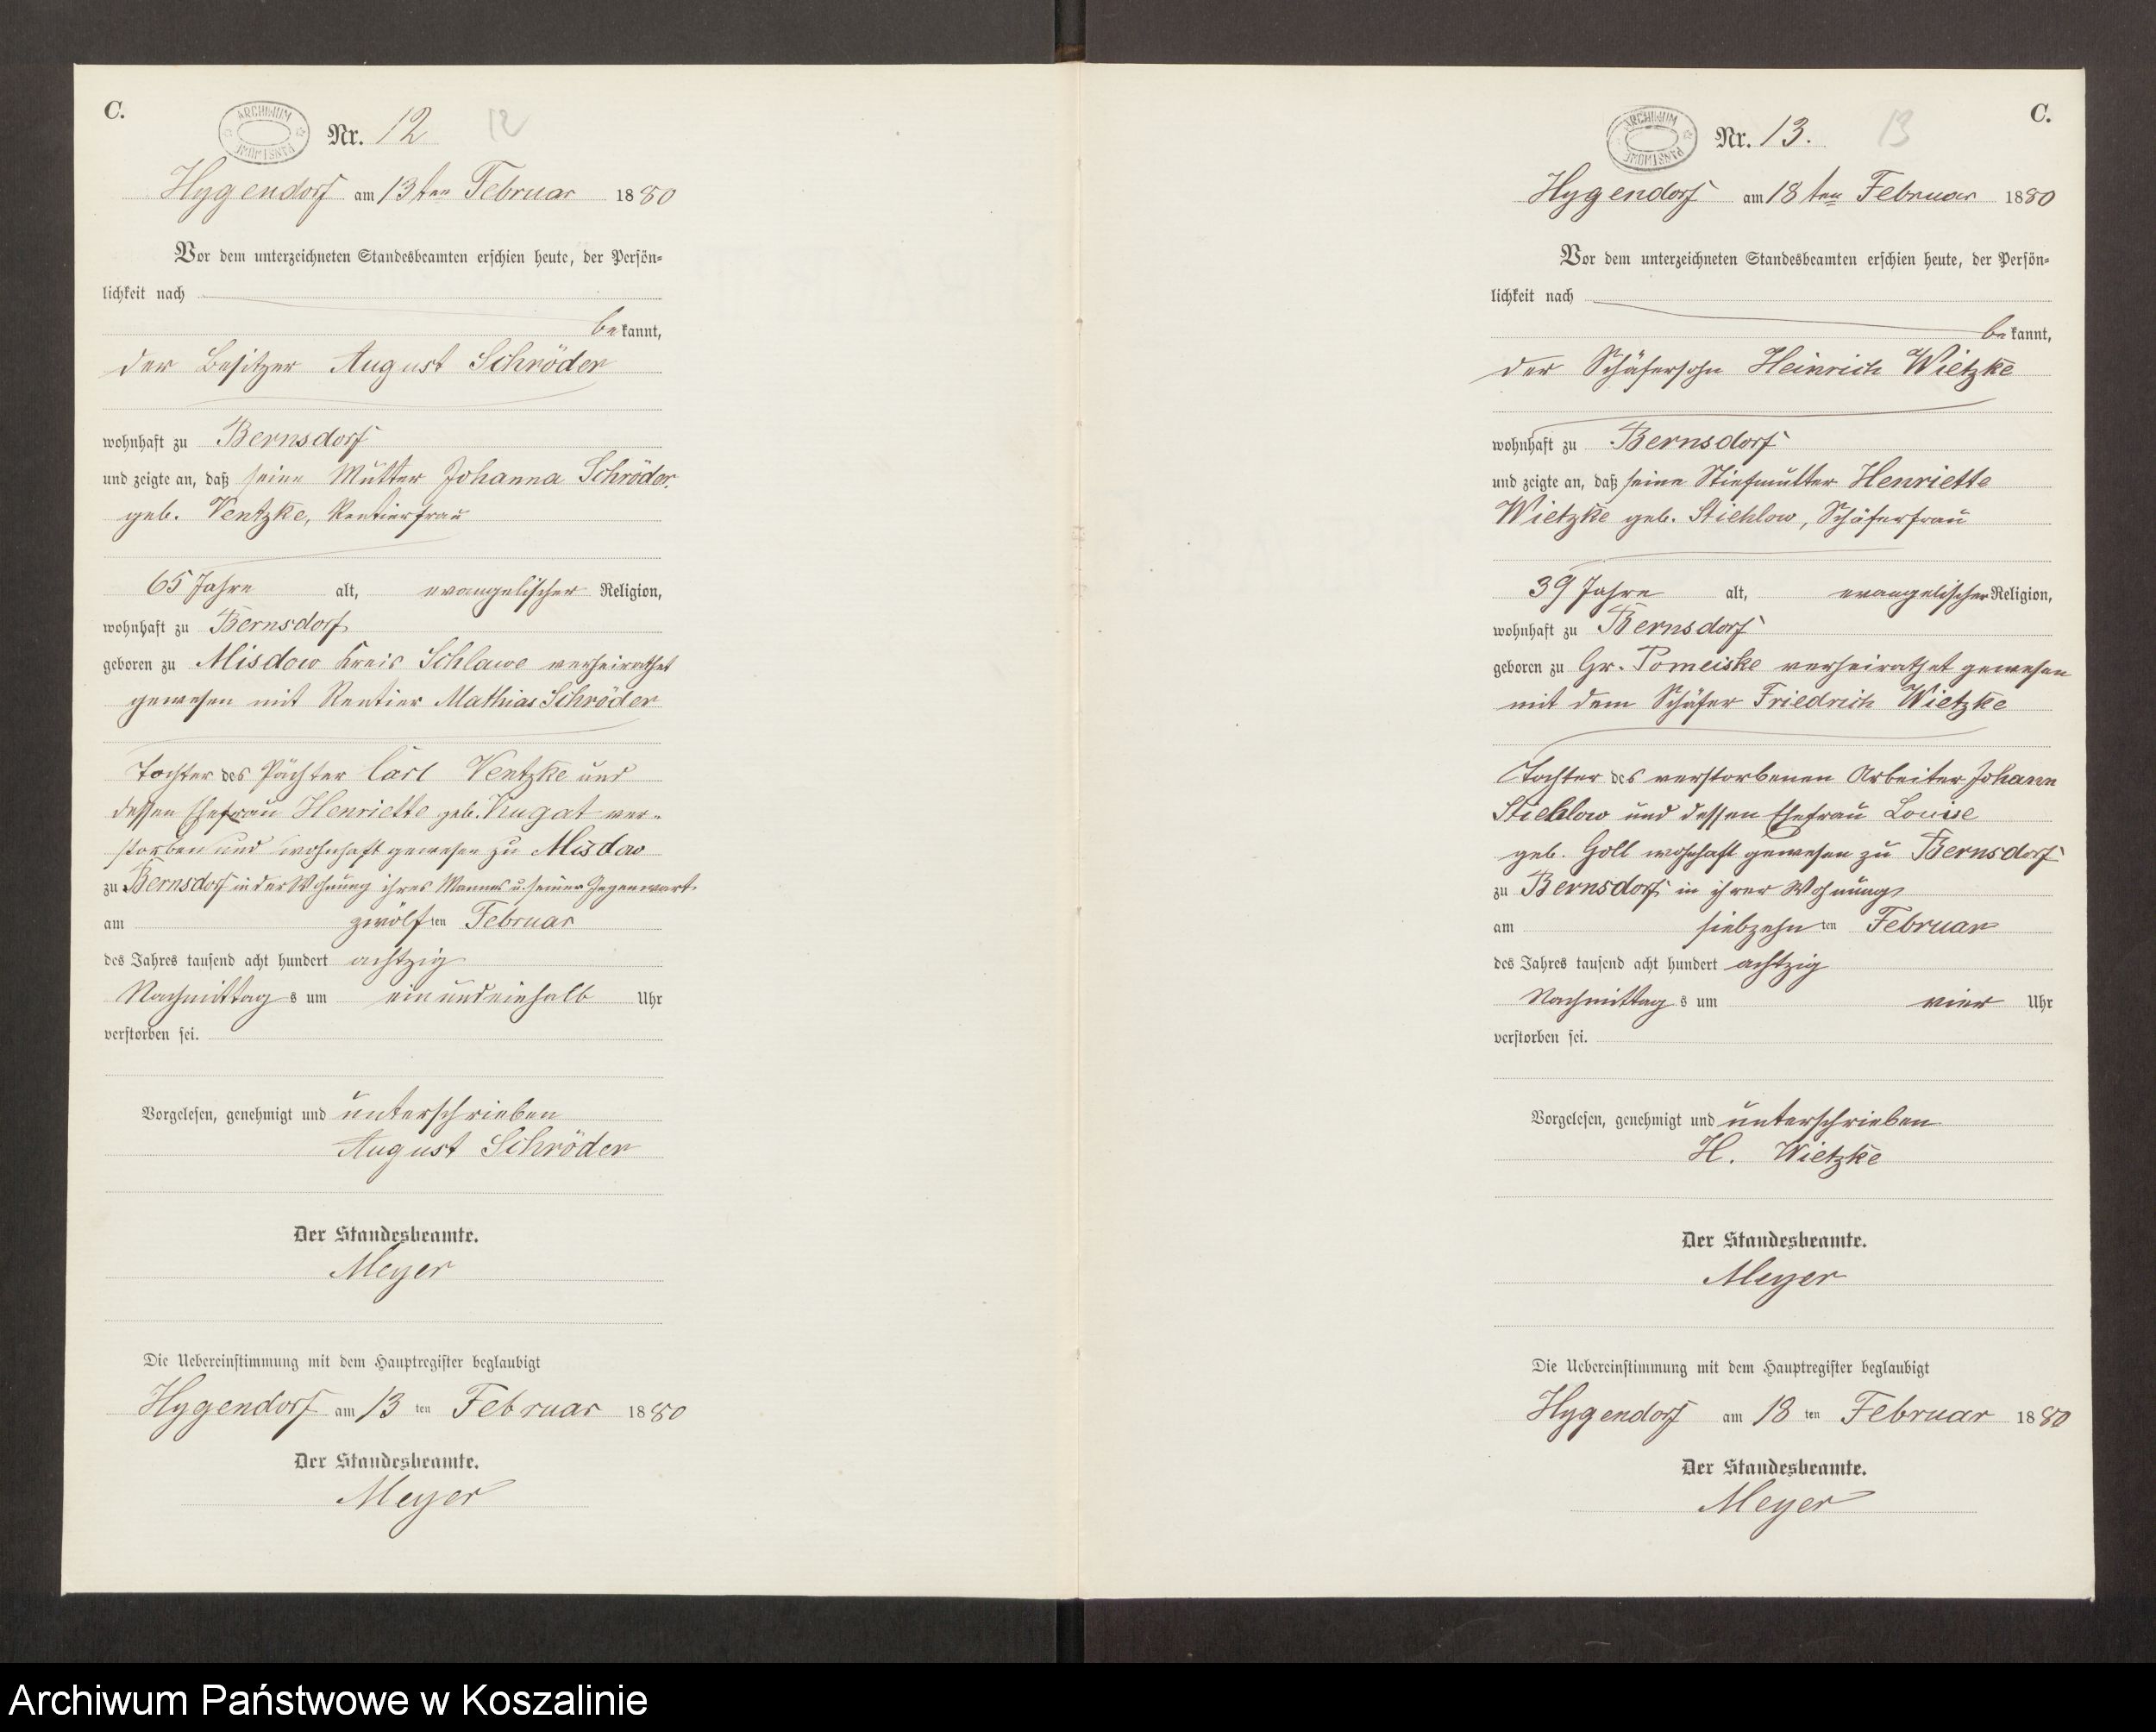 C.
ARCHIWUM PAŃSTWOWE
Nr. 12 12
Hygendorf am 13ten Februar 1880
Vor dem unterzeichneten Standesbeamten erschien heute, der Persön-
lichkeit nach
bekannt,
der Besitzer August Schröder
wohnhaft zu Bernsdorf
und zeigte an, daß seine Mutter Johanna Schröder
geb. Ventzke, Rentierfrau
65 Jahre alt, evangelischer Religion,
wohnhaft zu Bernsdorf
geboren zu Misdow Kreis Schlawe verheirathet
gewesen mit Rentier Mathias Schröder
Tochter des Pächter Carl Ventzke und
dessen Ehefrau Henriette geb. Kugat ver-
storben und wohnhaft gewesen zu Misdow
zu Bernsdorf in der Wohnung ihres Mannes u. seiner Gegenwart
am zwölften Februar
des Jahres tausend acht hundert achtzig
Nachmittags um ein und einhalb Uhr
verstorben sei.
Vorgelesen, genehmigt und unterschrieben
August Schröder
Der Standesbeamte.
Meyer
Die Uebereinstimmung mit dem Hauptregister beglaubigt
Hygendorf am 13ten Februar 1880
Der Standesbeamte.
Meyer
C.
ARCHIWUM PAŃSTWOWE
Nr. 13. 13
Hygendorf am 18ten Februar 1880
Vor dem unterzeichneten Standesbeamten erschien heute, der Persön-
lichkeit nach
bekannt,
der Schäfersohn Heinrich Wietzke
wohnhaft zu Bernsdorf
und zeigte an, daß seine Stiefmutter Henriette
Wietzke geb. Stiehlow, Schäferfrau
39 Jahre alt, evangelischer Religion,
wohnhaft zu Bernsdorf
geboren zu Gr. Pomeiske verheirathet gewesen
mit dem Schäfer Friedrich Wietzke
Tochter des verstorbenen Arbeiter Johann
Stiehlow und dessen Ehefrau Louise
geb. Goll wohnhaft gewesen zu Bernsdorf
zu Bernsdorf in ihrer Wohnung
am siebzehnten Februar
des Jahres tausend acht hundert achtzig
Nachmittags um vier Uhr
verstorben sei.
Vorgelesen, genehmigt und unterschrieben
H. Wietzke
Der Standesbeamte.
Meyer
Die Uebereinstimmung mit dem Hauptregister beglaubigt
Hygendorf am 18ten Februar 1880
Der Standesbeamte.
Meyer
Archiwum Państwowe w Koszalinie